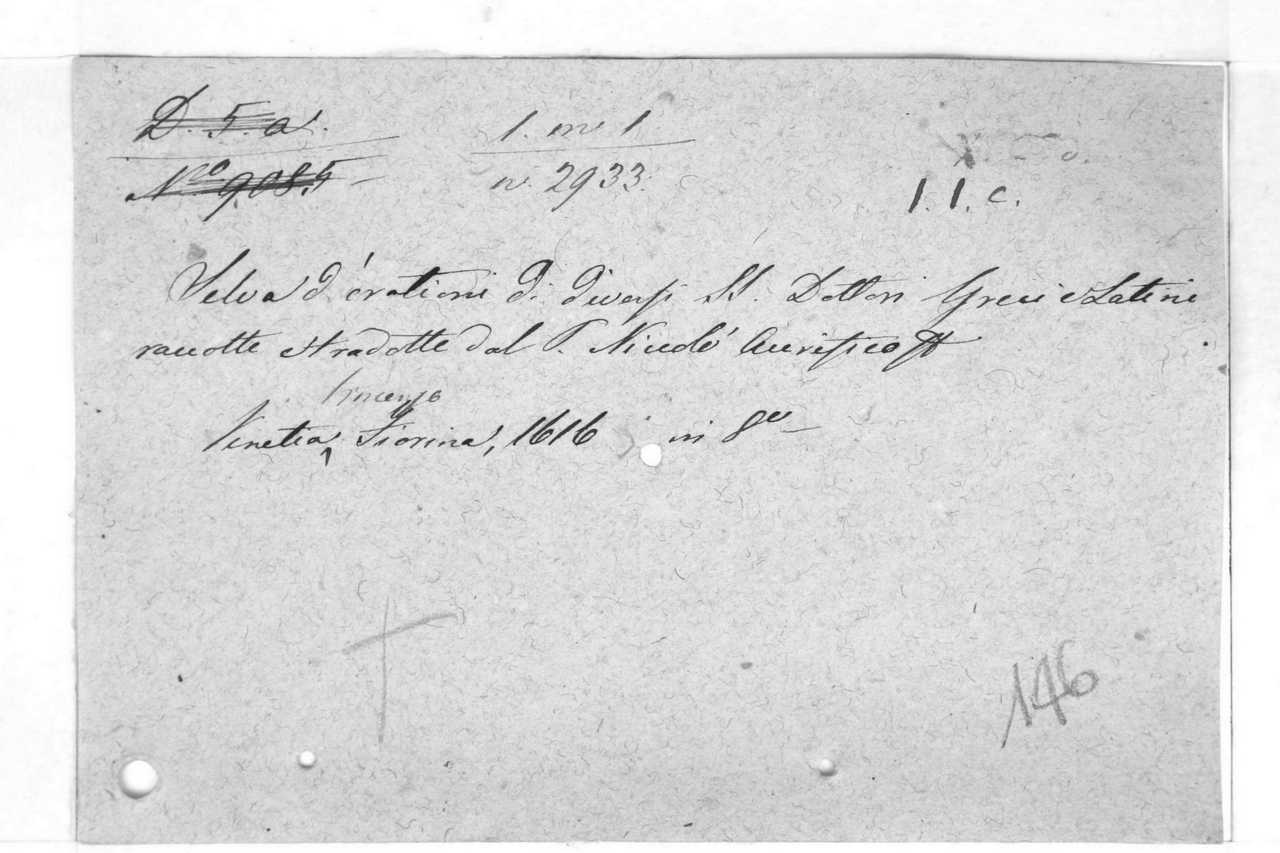 D. 5. a.
N.o 9085
1. m 1
n. 2933.
1. 1. c.
Selva d'orationi di diversi SS. Dottori Greci e Latini
raccotte e tradotte dal P. Nicolò Aurifico
Vincenzo
Venetia, Fiorina, 1616 in 8o
146